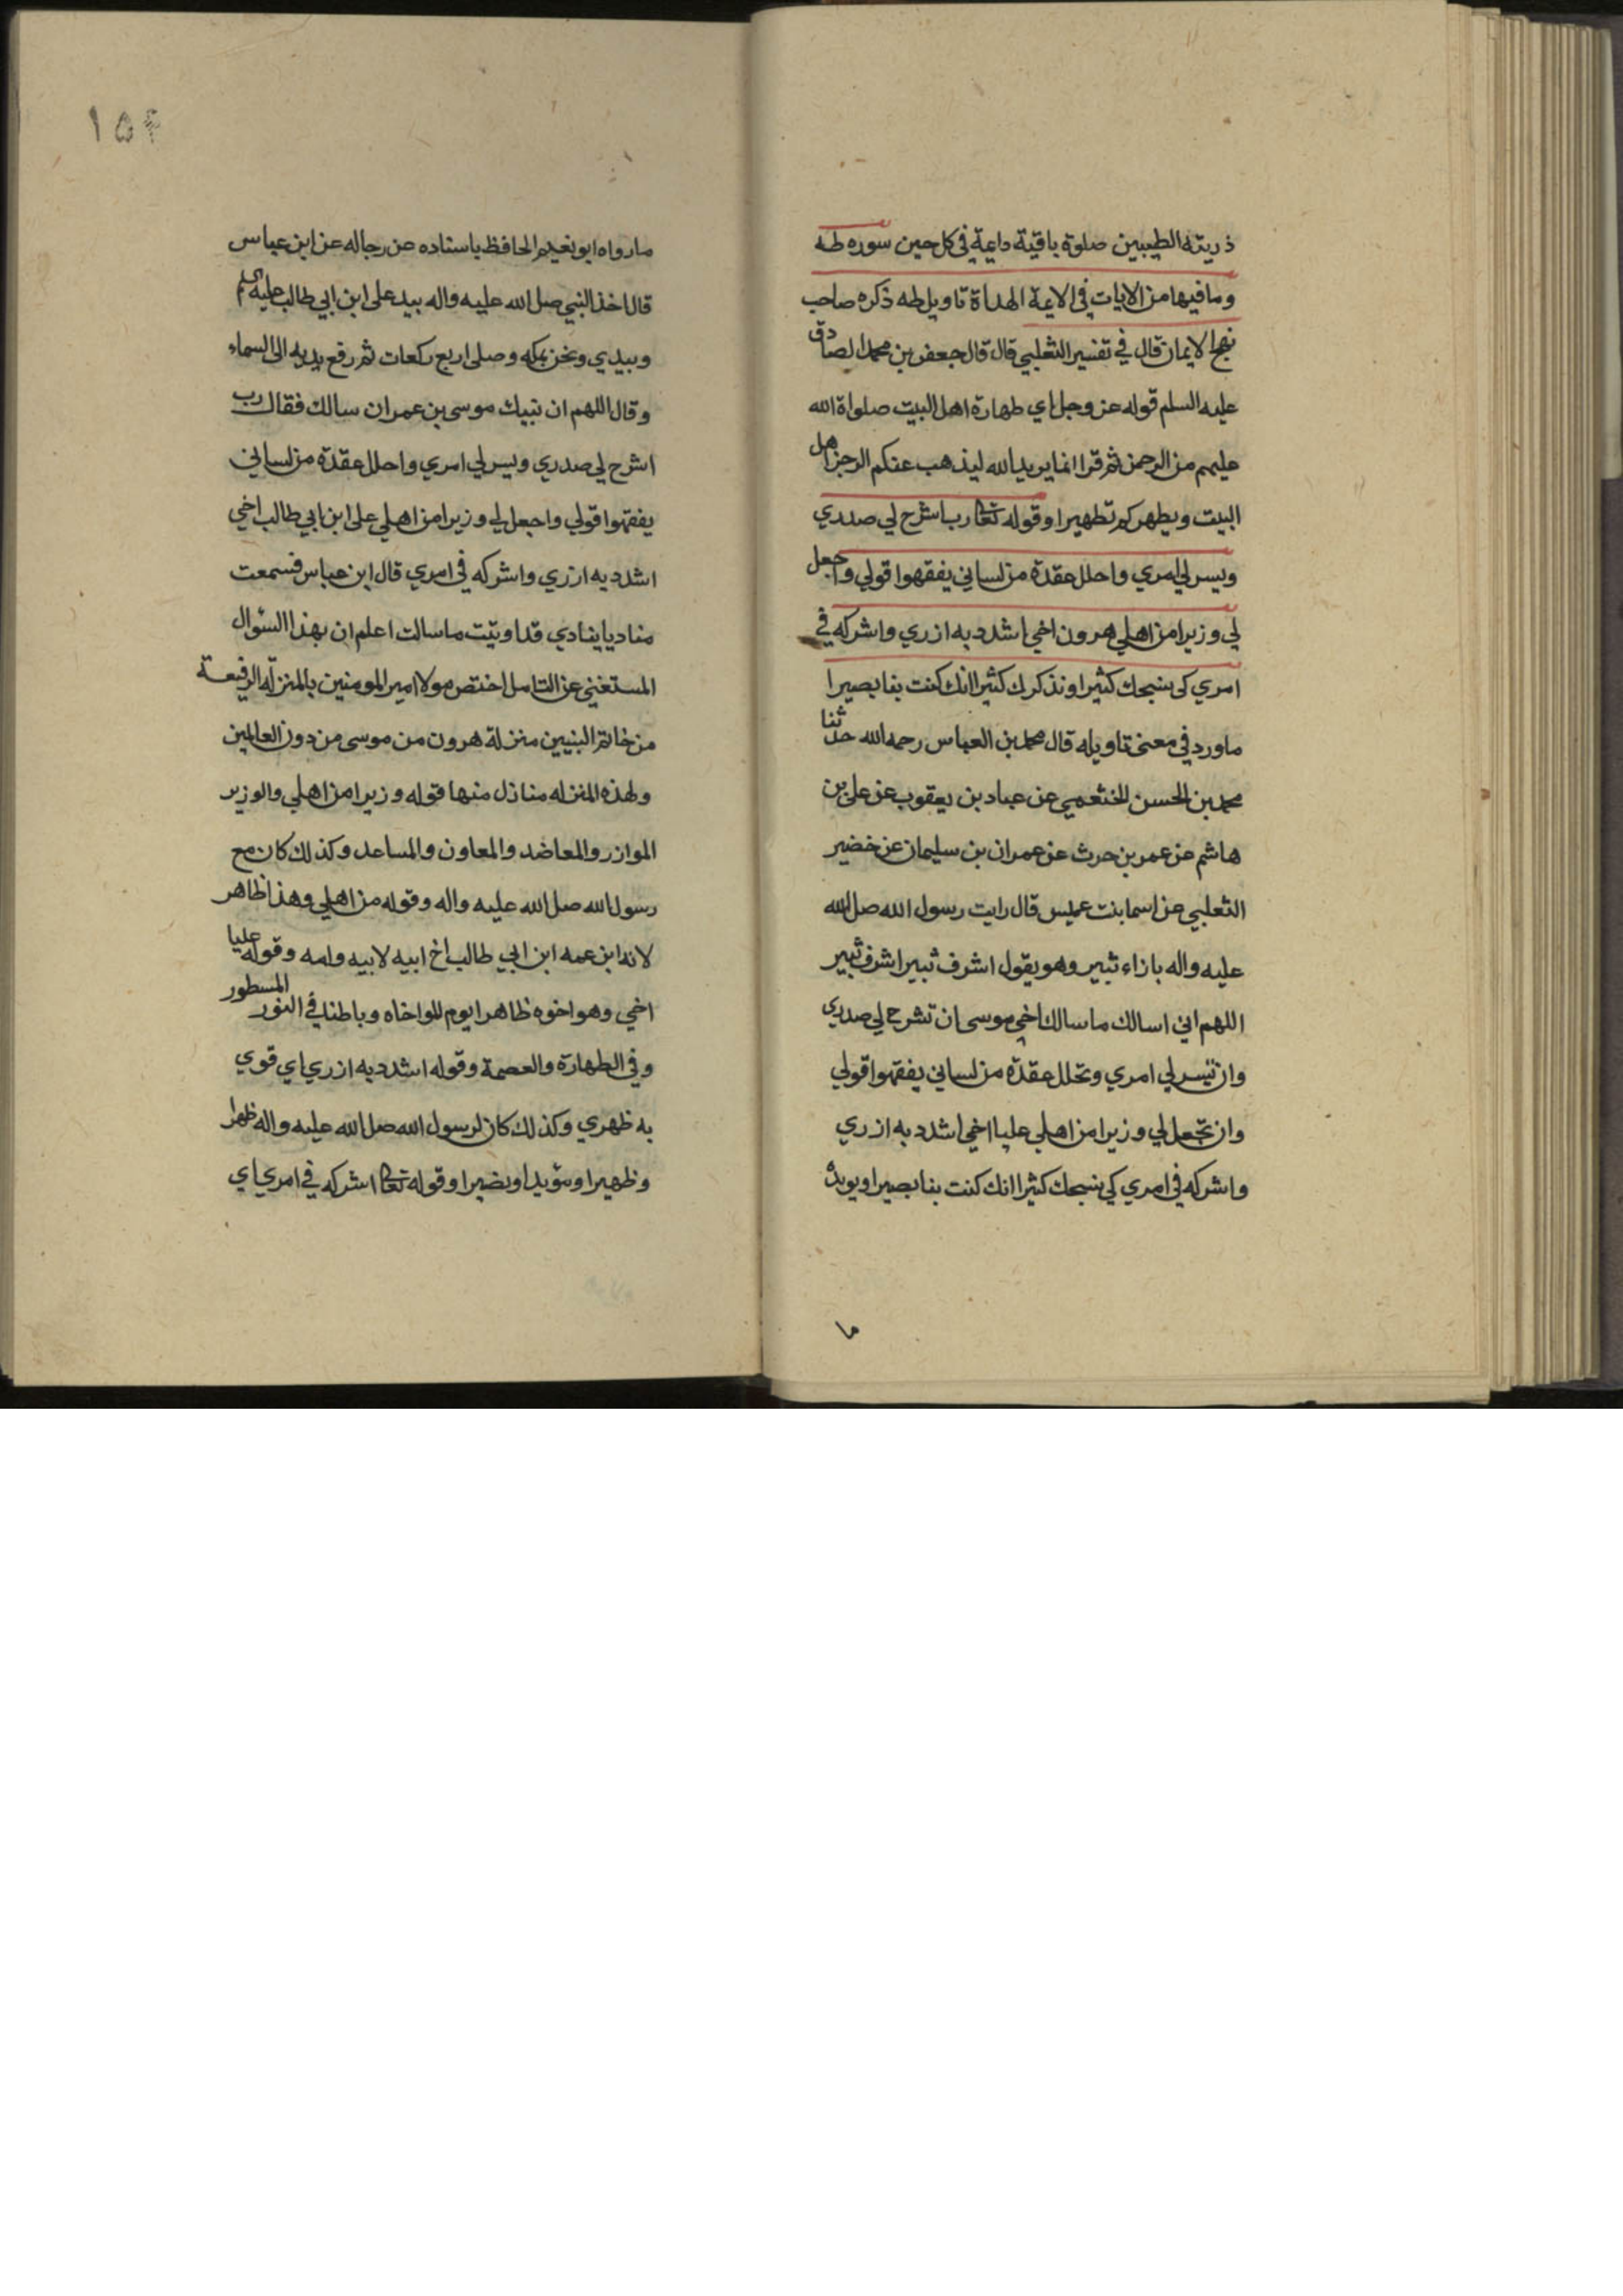 ذريته الطيبين صلوة باقية دايمة في كل حين سوره طه
وما فيها من الايات في الايمة الهداة تاويل طه ذكره صاحب
نهج الايمان قال في تفسير الثعلبي قال قال جعفر بن محمد الصادق
عليه السلم قوله عز وجل اي طهارة اهل البيت صلواة الله
عليهم من الرحمن ثم قرا انما يريد الله ليذهب عنكم الرجز اهل
البيت ويطهركم تطهيرا وقوله تعا رب اشرح لي صدري
ويسر لي امري واحلل عقدة من لساني يفقهوا قولي واجعل
لي وزيرا من اهلي هرون اخي اشدد به ازري واشركه في
امري كى نسبحك كثيرا ونذكرك كثيرا انك كنت بنا بصيرا
ماورد في معنى تاويله قال محمد بن العباس رحمه الله حدثنا
محمد بن الحسن الخثعمي عن عباد بن يعقوب عن على بن
هاشم عن عمر بن حرث عن عمران بن سليمان عن خضير
الثعلبي عن اسما بنت عميس قال رايت رسول الله صل الله
عليه واله بازاء ثبير وهو يقول اشرف ثبير اشرف ثبير
اللهم اني اسالك ما سالك اخي موسى ان تشرح لي صدري
وان تيسر لي امري وتحلل عقدة من لساني يفقهوا قولي
وان تجعل لي وزيرا من اهلي عليا اخي اشدد به ازري
واشركه في امري كي نسبحك كثيرا انك كنت بنا بصيرا ويويد
ما
١٥۴
مارواه ابو نعيم الحافظ باسناده عن رجاله عن ابن عباس
قال اخذ النبي صل الله عليه واله بيد على ابن ابي طالب عليه السلم
وبيدي ونحن بمكه وصلى اربع ركعات ثم رفع يديه الى السماء
وقال اللهم ان نبيك موسى بن عمران سالك فقال رب
اشرح لي صدري ويسر لي امري واحلل عقدة من لساني
يفقهوا قولي واجعل لي وزيرا من اهلي على ابن ابي طالب اخي
اشدد به ازري واشركه في امري قال ابن عباس فسمعت
مناديا ينادي قد اوتيت ما سالت اعلم ان بهذا السئوال
المستغني عن التامل اختص مولا امير المومنين بالمنزلة الرفيعة
من خاتم النبيين منزلة هرون من موسى من دون العالمين
ولهذه المنزله منازل منها قوله وزيرا من اهلي والوزير
الموازر والمعاضد والمعاون والمساعد وكذلك كان مع
رسول الله صل الله عليه واله وقوله من اهلي وهذا ظاهر
لانه ابن عمه ابن ابي طالب اخ ابيه لابيه وامه وقوله عليا
اخي وهو اخوه ظاهرا يوم المواخاه وباطنا في النور المسطور
وفي الطهارة والعصمة وقوله اشدد به ازري اي قوي
به ظهري وكذلك كان لرسول الله صل الله عليه واله ظهرا
وظهيرا ومئويدا ونصيرا وقوله تعا اشركه في امري اي